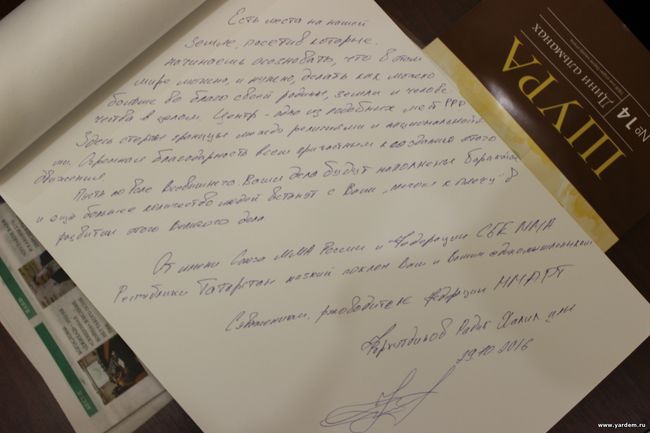 Есть места на нашей
Земле, посетив которые,
начинаешь осознавать, что в этом
мире можно, и нужно, делать как можно
больше во благо своей родины, земли и челове-
чества в целом. Центр - одно из подобных мест РФ
Здесь стерты границы между религиями и национальностя-
ми. Огромная благодарность всем причастным к созданию этого
движения.
Пусть по воле Всевышнего Ваши дела будут наполнены баракатом
и еще большее количество людей встанут с Вами "плечом к плечу" в
развитии этого великого дела
От имени Союза ММА России и Федерации СБЕ ММА
Республики Татарстан низкий поклон Вам и Вашим единомышленникам
С уважением, руководитель Федерации ММА РТ
Радик Халил улы
29.10.2016
ШУРА
Дини альманах
№14
www.yardem.ru